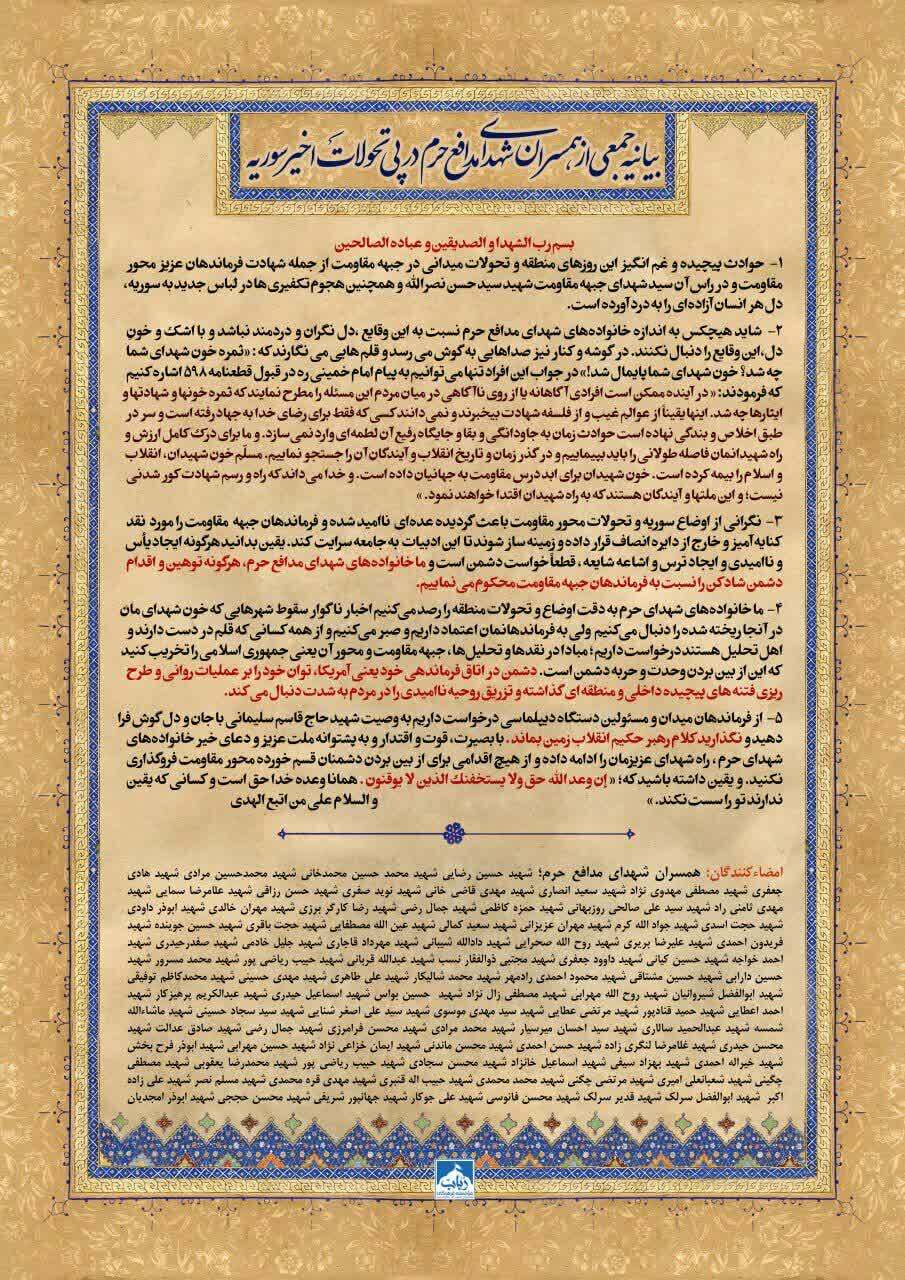 بیانیه جمعی از همسران شهدای مدافع حرم در پی تحولات اخیر سوریه
بسم رب الشهدا و الصدیقین و عباده الصالحین
۱- حوادث پیچیده و غم انگیز این روزهای منطقه و تحولات میدانی در جبهه مقاومت از جمله شهادت فرماندهان عزیز محور
مقاومت و در راس آن سید شهدای جبهه مقاومت شهید سید حسن نصرالله و همچنین هجوم تکفیری ها در لباس جدید به سوریه،
دل هر انسان آزاده ای را به درد آورده است.
۲- شاید هیچکس به اندازه خانواده‌های شهدای مدافع حرم نسبت به این وقایع ،دل نگران و دردمند نباشد و با اشک و خونِ
دل،این وقایع را دنبال نکنند. در گوشه و کنار نیز صداهایی به گوش می رسد و قلم هایی می نگارند که : «ثمره خون شهدای شما
چه شد؟ خون شهدای شما پایمال شد!» در جواب این افراد تنها می‌توانیم به پیام امام خمینی ره در قبول قطعنامه ۵۹۸ اشاره کنیم
که فرمودند: « در آینده ممکن است افرادی آگاهانه یا از روی ناآگاهی در میان مردم این مسئله را مطرح نمایند که ثمره خونها و شهادتها و
ایثارها چه شد. اینها یقیناً از عوالم غیب و از فلسفه شهادت بیخبرند و نمی دانند کسی که فقط برای رضای خدا به جهاد رفته است و سر در
طبق اخلاص و بندگی نهاده است حوادث زمان به جاودانگی و بقا و جایگاه رفیع آن لطمه ای وارد نمی سازد. و ما برای درک کامل ارزش و
راه شهیدانمان فاصله طولانی را باید بپیماییم و در گذر زمان و تاریخ انقلاب و آیندگان آن را جستجو نماییم. مسلّم خون شهیدان، انقلاب
و اسلام را بیمه کرده است. خون شهیدان برای ابد درس مقاومت به جهانیان داده است. و خدا می داند که راه و رسم شهادت کور شدنی
نیست؛ و این ملتها و آیندگان هستند که به راه شهیدان اقتدا خواهند نمود. »
۳- نگرانی از اوضاع سوریه و تحولات محور مقاومت باعث گردیده عده‌ای ناامید شده و فرماندهان جبهه مقاومت را مورد نقد
کنایه آمیز و خارج از دایره انصاف قرار داده و زمینه ساز شوند تا این ادبیات به جامعه سرایت کند. یقین بدانید هرگونه ایجاد یأس
و ناامیدی و ایجاد ترس و اشاعه شایعه ، قطعاً خواست دشمن است و ما خانواده‌های شهدای مدافع حرم، هرگونه توهین و اقدام
دشمن شادکن را نسبت به فرماندهان جبهه مقاومت محکوم می نماییم.
۴- ما خانواده‌های شهدای حرم به دقت اوضاع و تحولات منطقه را رصد می‌کنیم اخبار ناگوار سقوط شهرهایی که خون شهدای مان
در آنجا ریخته شده را دنبال می‌کنیم ولی به فرماندهانمان اعتماد داریم و صبر می‌کنیم و از همه کسانی که قلم در دست دارند و
اهل تحلیل هستند درخواست داریم؛ مبادا در نقدها و تحلیل‌ها، جبهه مقاومت و محور آن یعنی جمهوری اسلامی را تخریب کنید
که این از بین بردن وحدت و حربه دشمن است. دشمن در اتاق فرماندهی خود یعنی آمریکا، توان خود را بر عملیات روانی و طرح
ریزی فتنه های پیچیده داخلی و منطقه ای گذاشته و تزریق روحیه ناامیدی را در مردم به شدت دنبال می‌کند.
۵- از فرماندهان میدان و مسئولین دستگاه دیپلماسی درخواست داریم به وصیت شهید حاج قاسم سلیمانی با جان و دل گوش فرا
دهید و نگذارید کلام رهبر حکیم انقلاب زمین بماند. با بصیرت، قوت و اقتدار و به پشتوانه ملت عزیز و دعای خیر خانواده‌های
شهدای حرم ، راه شهدای عزیزمان را ادامه داده و از هیچ اقدامی برای از بین بردن دشمنان قسم خورده محور مقاومت فروگذاری
نکنید. و یقین داشته باشید که؛ « إن وعد الله حق ولا یستخفنك الذین لا یوقنون . همانا وعده خدا حق است و کسانی که یقین
ندارند تو را سست نکند. » و السلام علی من اتبع الهدی
امضاءکنندگان: همسران شهدای مدافع حرم؛ شهید حسین رضایی شهید محمد حسین محمدخانی شهید محمدحسین مرادی شهید هادی
جعفری شهید مصطفی مهدوی نژاد شهید سعید انصاری شهید مهدی قاضی خانی شهید نوید صفری شهید حسن رزاقی شهید غلامرضا سمایی شهید
مهدی ثامنی راد شهید سید علی صالحی روزبهانی شهید حمزه کاظمی شهید جمال رضی شهید رضا کارگر برزی شهید مهران خالدی شهید ابوذر داودی
شهید حجت اسدی شهید جواد الله کرم شهید مهران عزیزانی شهید سعید کمالی شهید عین الله مصطفایی شهید حجت باقری شهید حسین جوینده شهید
فریدون احمدی شهید علیرضا بریری شهید روح الله صحرایی شهید دادالله شیبانی شهید مهرداد قاجاری شهید جلیل خادمی شهید صفدرحیدری شهید
احمد خواجه شهید حسین کیانی شهید داوود جعفری شهید مجتبی ذوالفقار نسب شهید عبدالله قربانی شهید حبیب ریاضی پور شهید محمد مسرور شهید
حسین دارابی شهید حسین مشتاقی شهید محمود احمدی رادمهر شهید محمد شالیکار شهید علی طاهری شهید مهدی حسینی شهید محمدکاظم توفیقی
شهید ابوالفضل شیروانیان شهید روح الله مهرابی شهید مصطفی زال نژاد شهید حسین بواس شهید اسماعیل حیدری شهید عبدالکریم پرهیزکار شهید
احمد اعطایی شهید حمید قنادپور شهید مرتضی عطایی شهید سید مهدی موسوی شهید سید علی اصغر شنایی شهید سید سجاد حسینی شهید ماشاءالله
شمسه شهید عبدالحمید سالاری شهید سید احسان میرسیار شهید محمد مرادی شهید محسن فرامرزی شهید جمال رضی شهید صادق عدالت شهید
محسن حیدری شهید غلامرضا لنگری زاده شهید حسن احمدی شهید محسن ماندنی شهید ایمان خزاعی نژاد شهید حسین مهرابی شهید ابوذر فرح بخش
شهید خیراله احمدی شهید بهزاد سیفی شهید اسماعیل خانزاد شهید محسن سجادی شهید حبیب ریاضی پور شهید محمدرضا یعقوبی شهید مصطفی
چگینی شهید شعبانعلی امیری شهید مرتضی چگنی شهید محمد محمدی شهید حبیب اله قنبری شهید مهدی قره محمدی شهید مسلم نصر شهید علی زاده
اکبر شهید ابوالفضل سرلک شهید قدیر سرلک شهید محسن فانوسی شهید علی جوکار شهید جهانپور شریفی شهید محسن حججی شهید ابوذر امجدیان